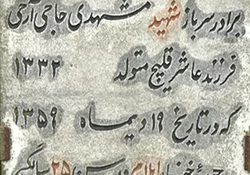 برادر سرباز شهید مشهدی حاجی آرخی
فرزند عاشر قلیچ متولد ۱۳۳۲
که در تاریخ ۱۹ دیماه ۱۳۵۹
ایلام در سن ۲۵ سالگی